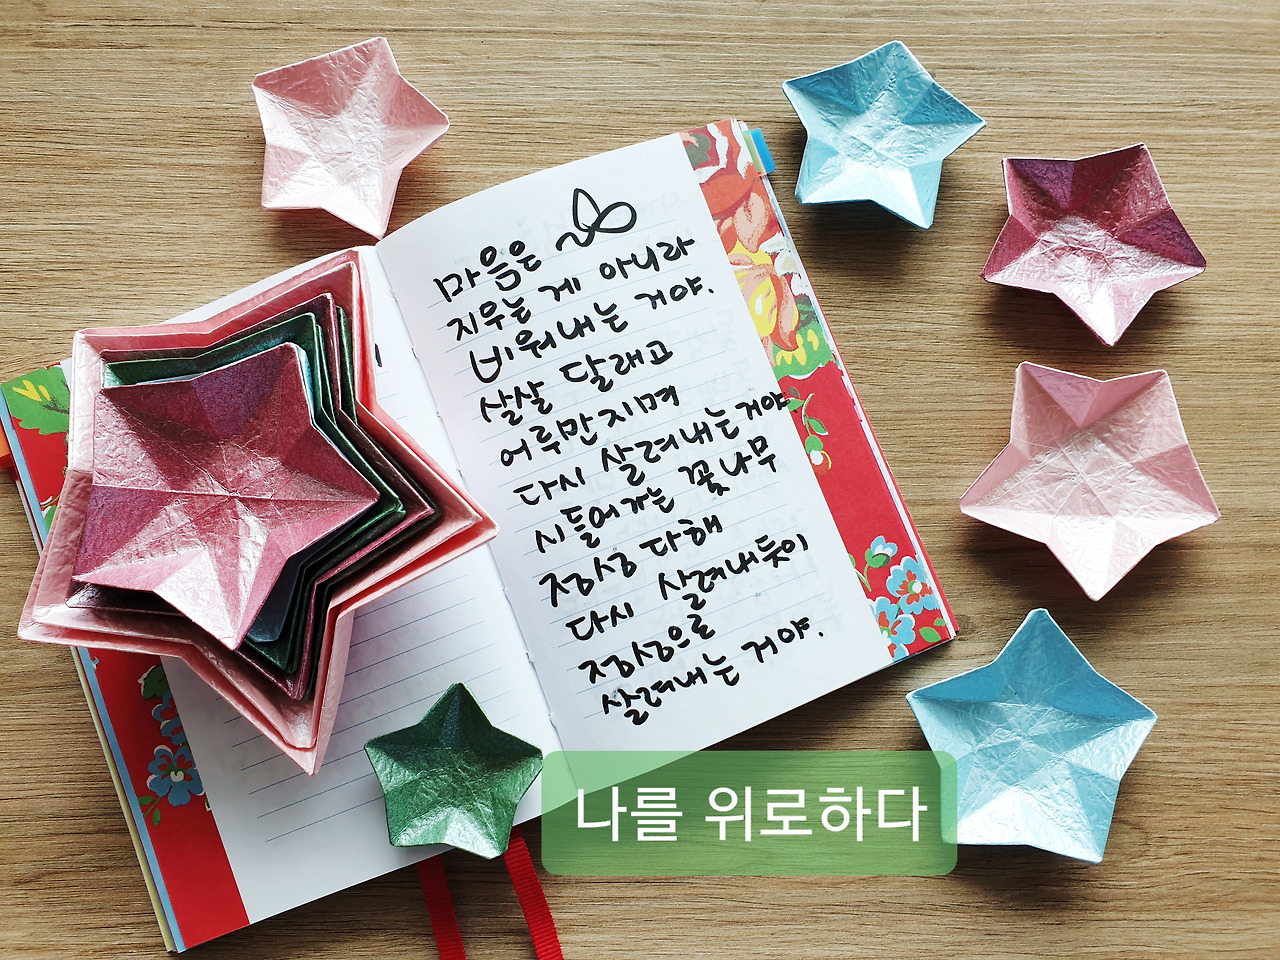 마음은
지우는 게 아니라
비워내는 거야.
살살 달래고
어루만지며
다시 살려내는거야
시들어가는 꽃나무
정성 다해
다시 살려내듯이
정성으로
살려내는 거야.
나를 위로하다